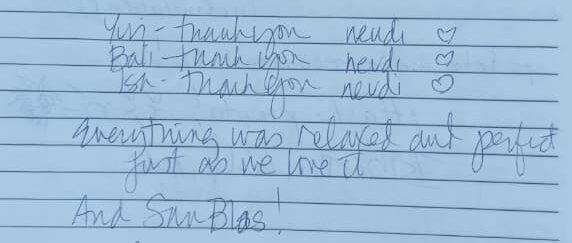 Yuri - thank you neudi ♡
Bati - thank you neudi ♡
Isa - thank you neudi ♡
Everything was relaxed and perfect
just as we love it
And San Blas!